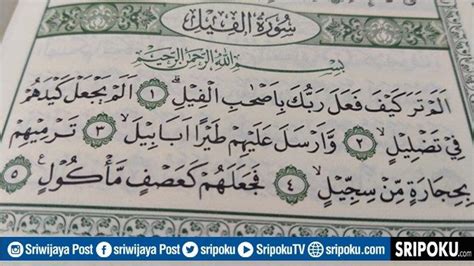 سُوْرَةُ الْفِيْلِ
بِسْمِ اللّٰهِ الرَّحْمٰنِ الرَّحِيْمِ
اَلَمْ تَرَ كَيْفَ فَعَلَ رَبُّكَ بِاَصْحٰبِ الْفِيْلِۗ ١ اَلَمْ يَجْعَلْ كَيْدَهُمْ
فِيْ تَضْلِيْلٍۙ ٢ وَّاَرْسَلَ عَلَيْهِمْ طَيْرًا اَبَابِيْلَۙ ٣ تَرْمِيْهِمْ
بِحِجَارَةٍ مِّنْ سِجِّيْلٍۙ ٤ فَجَعَلَهُمْ كَعَصْفٍ مَّأْكُوْلٍ ٥
Sriwijaya Post sriwijaya Post sripoku SripokuTV sripoku.com SRIPOKU.com